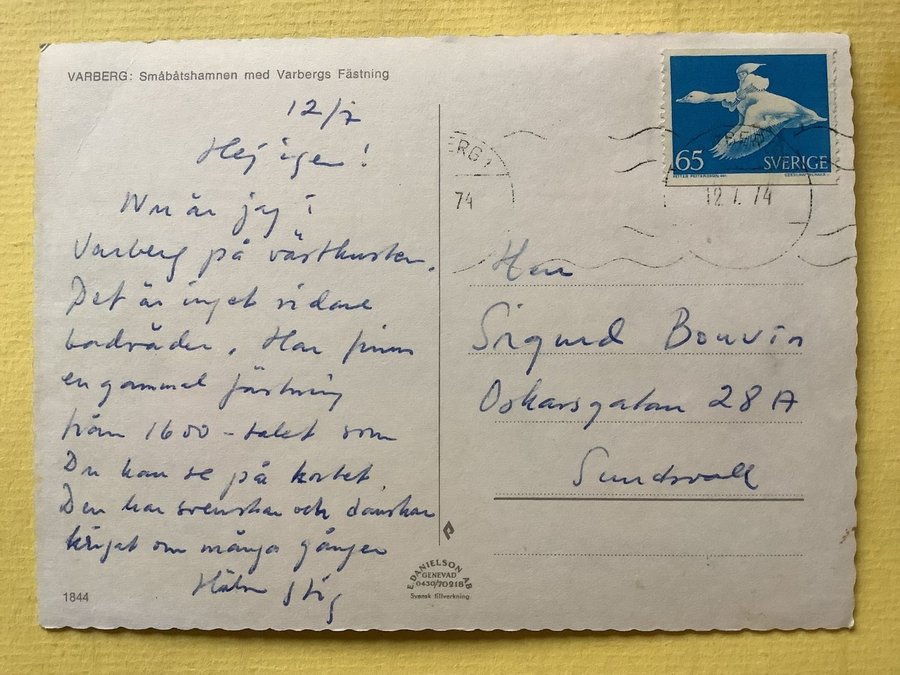 VARBERG: Småbåtshamnen med Varbergs Fästning
12/7
Hej igen!
Nu är jag i
Varberg på västkusten.
Det är inget vidare
badväder. Här finns
en gammal fästning
från 1600-talet som
Du kan se på kortet.
Den har svenskar och danskar
krigat om många gånger
Hälsn Stig
1844
E. DANIELSON AB
GENEVAD
0430/70218
Svensk tillverkning.
65 SVERIGE
12.7.74
ERG 1
74
Herr
Sigurd Bouvin
Oskarsgatan 28 A
Sundsvall